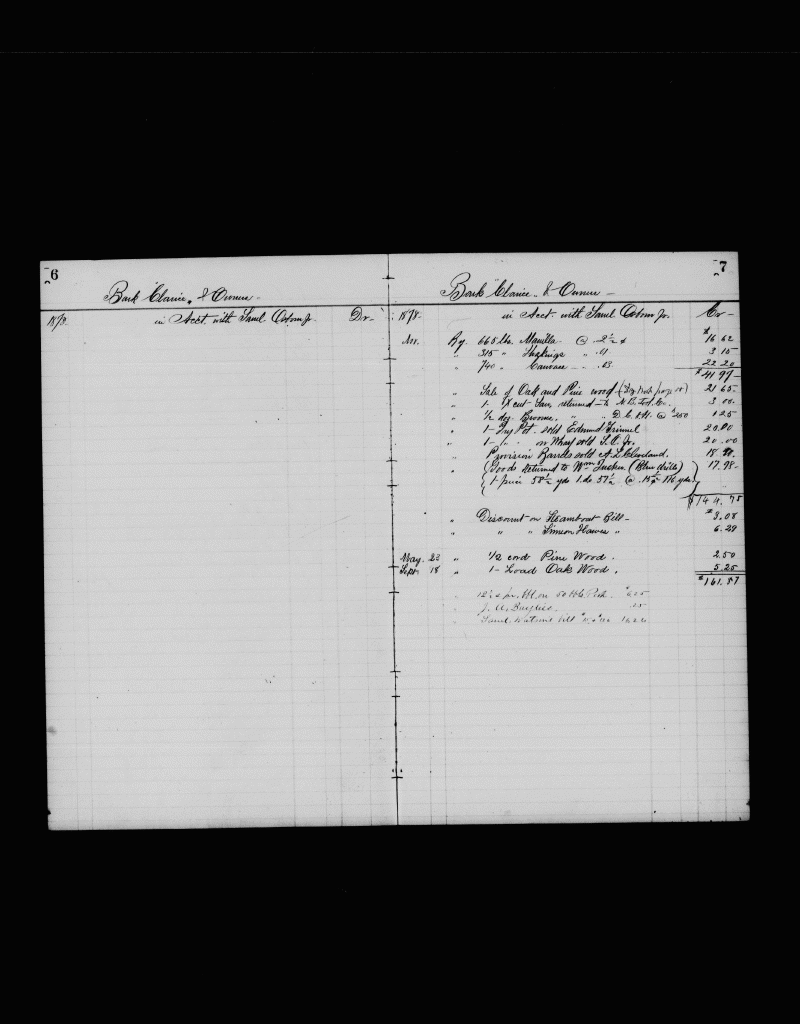 6
Bark Clarice & Owners
1878. in Acct. with Saml. Osborn Jr. Dr
7
Bark Clarice & Owners
1878. in Acct. with Saml Osborn Jr. Cr
Nov. By 665 lbs. Manilla @ 2½ ¢ $16 62
" 315 " " .01 3 15
" 740 " Canvass " .03 22 20
$41 97
" Sale of Oak and Pine wood 21 65
" 1 X cut Saw, returned to 3 00
" ½ doz. Brooms, " " @ $2.50 1 25
" 1 Try Pot. sold Edmund Grinnel 20.00
" 1 " " on Wharf sold S.O. Jr. 20.00
" Provision Barrels sold A. L. Cleveland. 18
" Goods Returned to Wm Tucker (Blue drills) 17.98
1 piece 58½ yds 1 do 57½ @ 116 yds
$144.75
" Discount on Steamboat Bill $3.08
" " " Simeon Hawes " 6.29
May 22 " 1/2 cord Pine Wood. 2.50
Sept 18 " 1 Load Oak Wood. 5.25
$161.87
" 12½ ¢ pr. bbl. on 50 bbls Pork. $6.25
" J. U. .25
" Saml. Watson bill